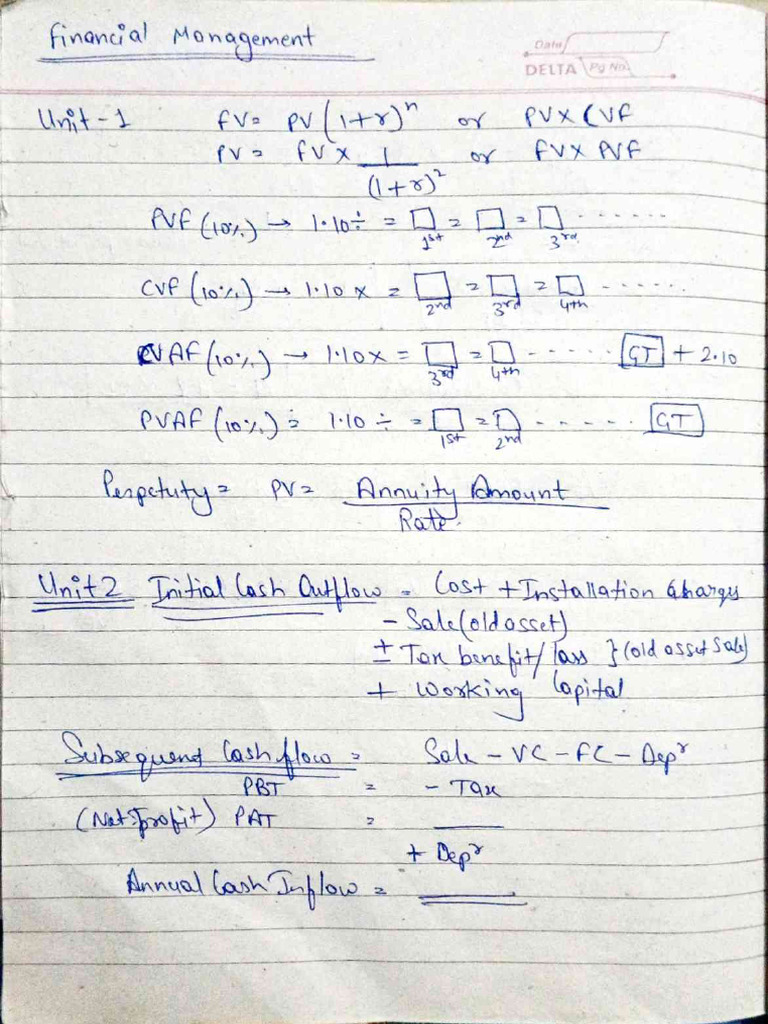 Financial Management
Date
DELTA Pg No.
Unit-1 FV = PV (1+r)^n or PV x CVF
PV = FV x 1/(1+r)^2 or FV x PVF
PVF (10%) → 1.10 ÷ = □ = □ = □ ......
1st 2nd 3rd
CVF (10%) → 1.10 x = □ = □ = □ ......
2nd 3rd 4th
CVAF (10%) → 1.10 x = □ = □ ...... GT + 2.10
3rd 4th
PVAF (10%) = 1.10 ÷ = □ = □ ...... GT
1st 2nd
Perpetuty = PV = Annuity Amount
Rate
Unit 2 Initial Cash Outflow = Cost + Installation Charges
- Sale (old asset)
± Tax benefit/loss } (old asset sale)
+ Working Capital
Subsequent Cash flow = Sale - VC - FC - Depr
PBT = - Tax
(Net Profit) PAT =
+ Depr
Annual Cash Inflow =